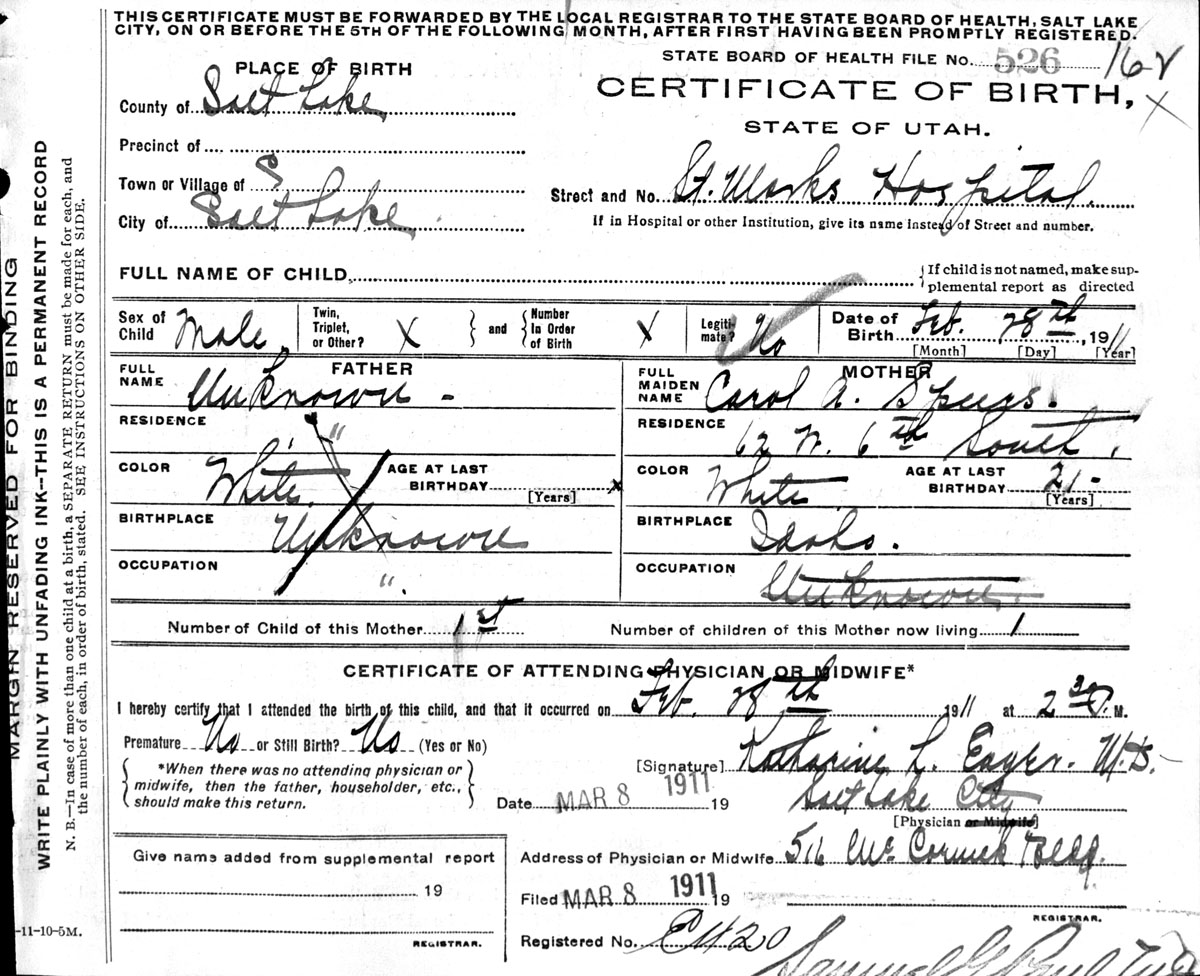 THIS CERTIFICATE MUST BE FORWARDED BY THE LOCAL REGISTRAR TO THE STATE BOARD OF HEALTH, SALT LAKE
CITY, ON OR BEFORE THE 5TH OF THE FOLLOWING MONTH, AFTER FIRST HAVING BEEN PROMPTLY REGISTERED.
STATE BOARD OF HEALTH FILE No. 526 162
PLACE OF BIRTH
CERTIFICATE OF BIRTH,
County of Salt Lake
STATE OF UTAH.
Precinct of
Town or Village of S
Street and No. St. Marks Hospital.
City of Salt Lake.
If in Hospital or other Institution, give its name instead of Street and number.
FULL NAME OF CHILD
If child is not named, make sup-
plemental report as directed
Sex of Child Male.
Twin, Triplet, or Other? X
and
Number In Order of Birth X
Legiti-mate? No
Date of Birth Feb. 28th, 1911
[Month] [Day] [Year]
FATHER
FULL NAME Unknown -
RESIDENCE "
COLOR White.
AGE AT LAST BIRTHDAY x
[Years]
BIRTHPLACE Unknown
OCCUPATION ".
MOTHER
FULL MAIDEN NAME Carol A.
RESIDENCE 62 W. 6th South.
COLOR White
AGE AT LAST BIRTHDAY 21-
[Years]
BIRTHPLACE Idaho.
OCCUPATION Unknown
Number of Child of this Mother 1st
Number of children of this Mother now living 1
CERTIFICATE OF ATTENDING PHYSICIAN OR MIDWIFE*
I hereby certify that I attended the birth of this child, and that it occurred on Feb. 28th 1911 at 2 30 P. M.
Premature No or Still Birth? No (Yes or No)
*When there was no attending physician or
midwife, then the father, householder, etc.,
should make this return.
[Signature] Katharine L. Eager. M.D.
Date MAR 8 1911 19
Salt Lake City
[Physician or Midwife]
Address of Physician or Midwife 516 McCornick Bldg.
Filed MAR 8 1911 19
REGISTRAR.
Registered No. E420
Give name added from supplemental report
19
REGISTRAR.
-11-10-5M.
MARGIN RESERVED FOR BINDING
WRITE PLAINLY WITH UNFADING INK--THIS IS A PERMANENT RECORD
N. B.—In case of more than one child at a birth a SEPARATE RETURN must be made for each, and
the number of each, in order of birth, stated. SEE INSTRUCTIONS ON OTHER SIDE.